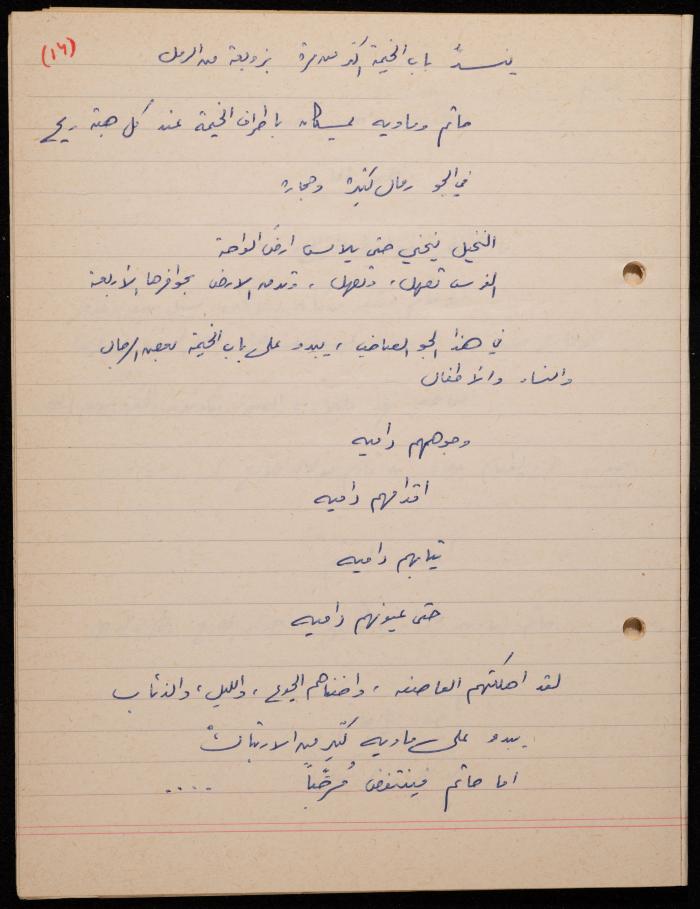 (١٤)
ينسدُّ باب الخيمة اكثر من مرة بزوبعة من الرمل
حاتم وماويه يمسكان باطراف الخيمة عند كل هبة ريح
في الجو رمال كثيرة وحجارة
النخيل ينحني حتى يلامس ارض الواحة
الفرس تصهل، وتصهل، وتدق الارض بحوافرها الأربعة
في هذا الجو العاصف، يبدو على باب الخيمة بعض الرجال
والنساء والأطفال
وجوههم داميه
اقدامهم داميه
ثيابهم داميه
حتى عيونهم داميه
لقد اهلكتهم العاصفه، واضناهم الجوع، والليل، والذئاب
يبدو على ماويه كثير من الارتباك
اما حاتم فينتفض مُرحِّباً ....